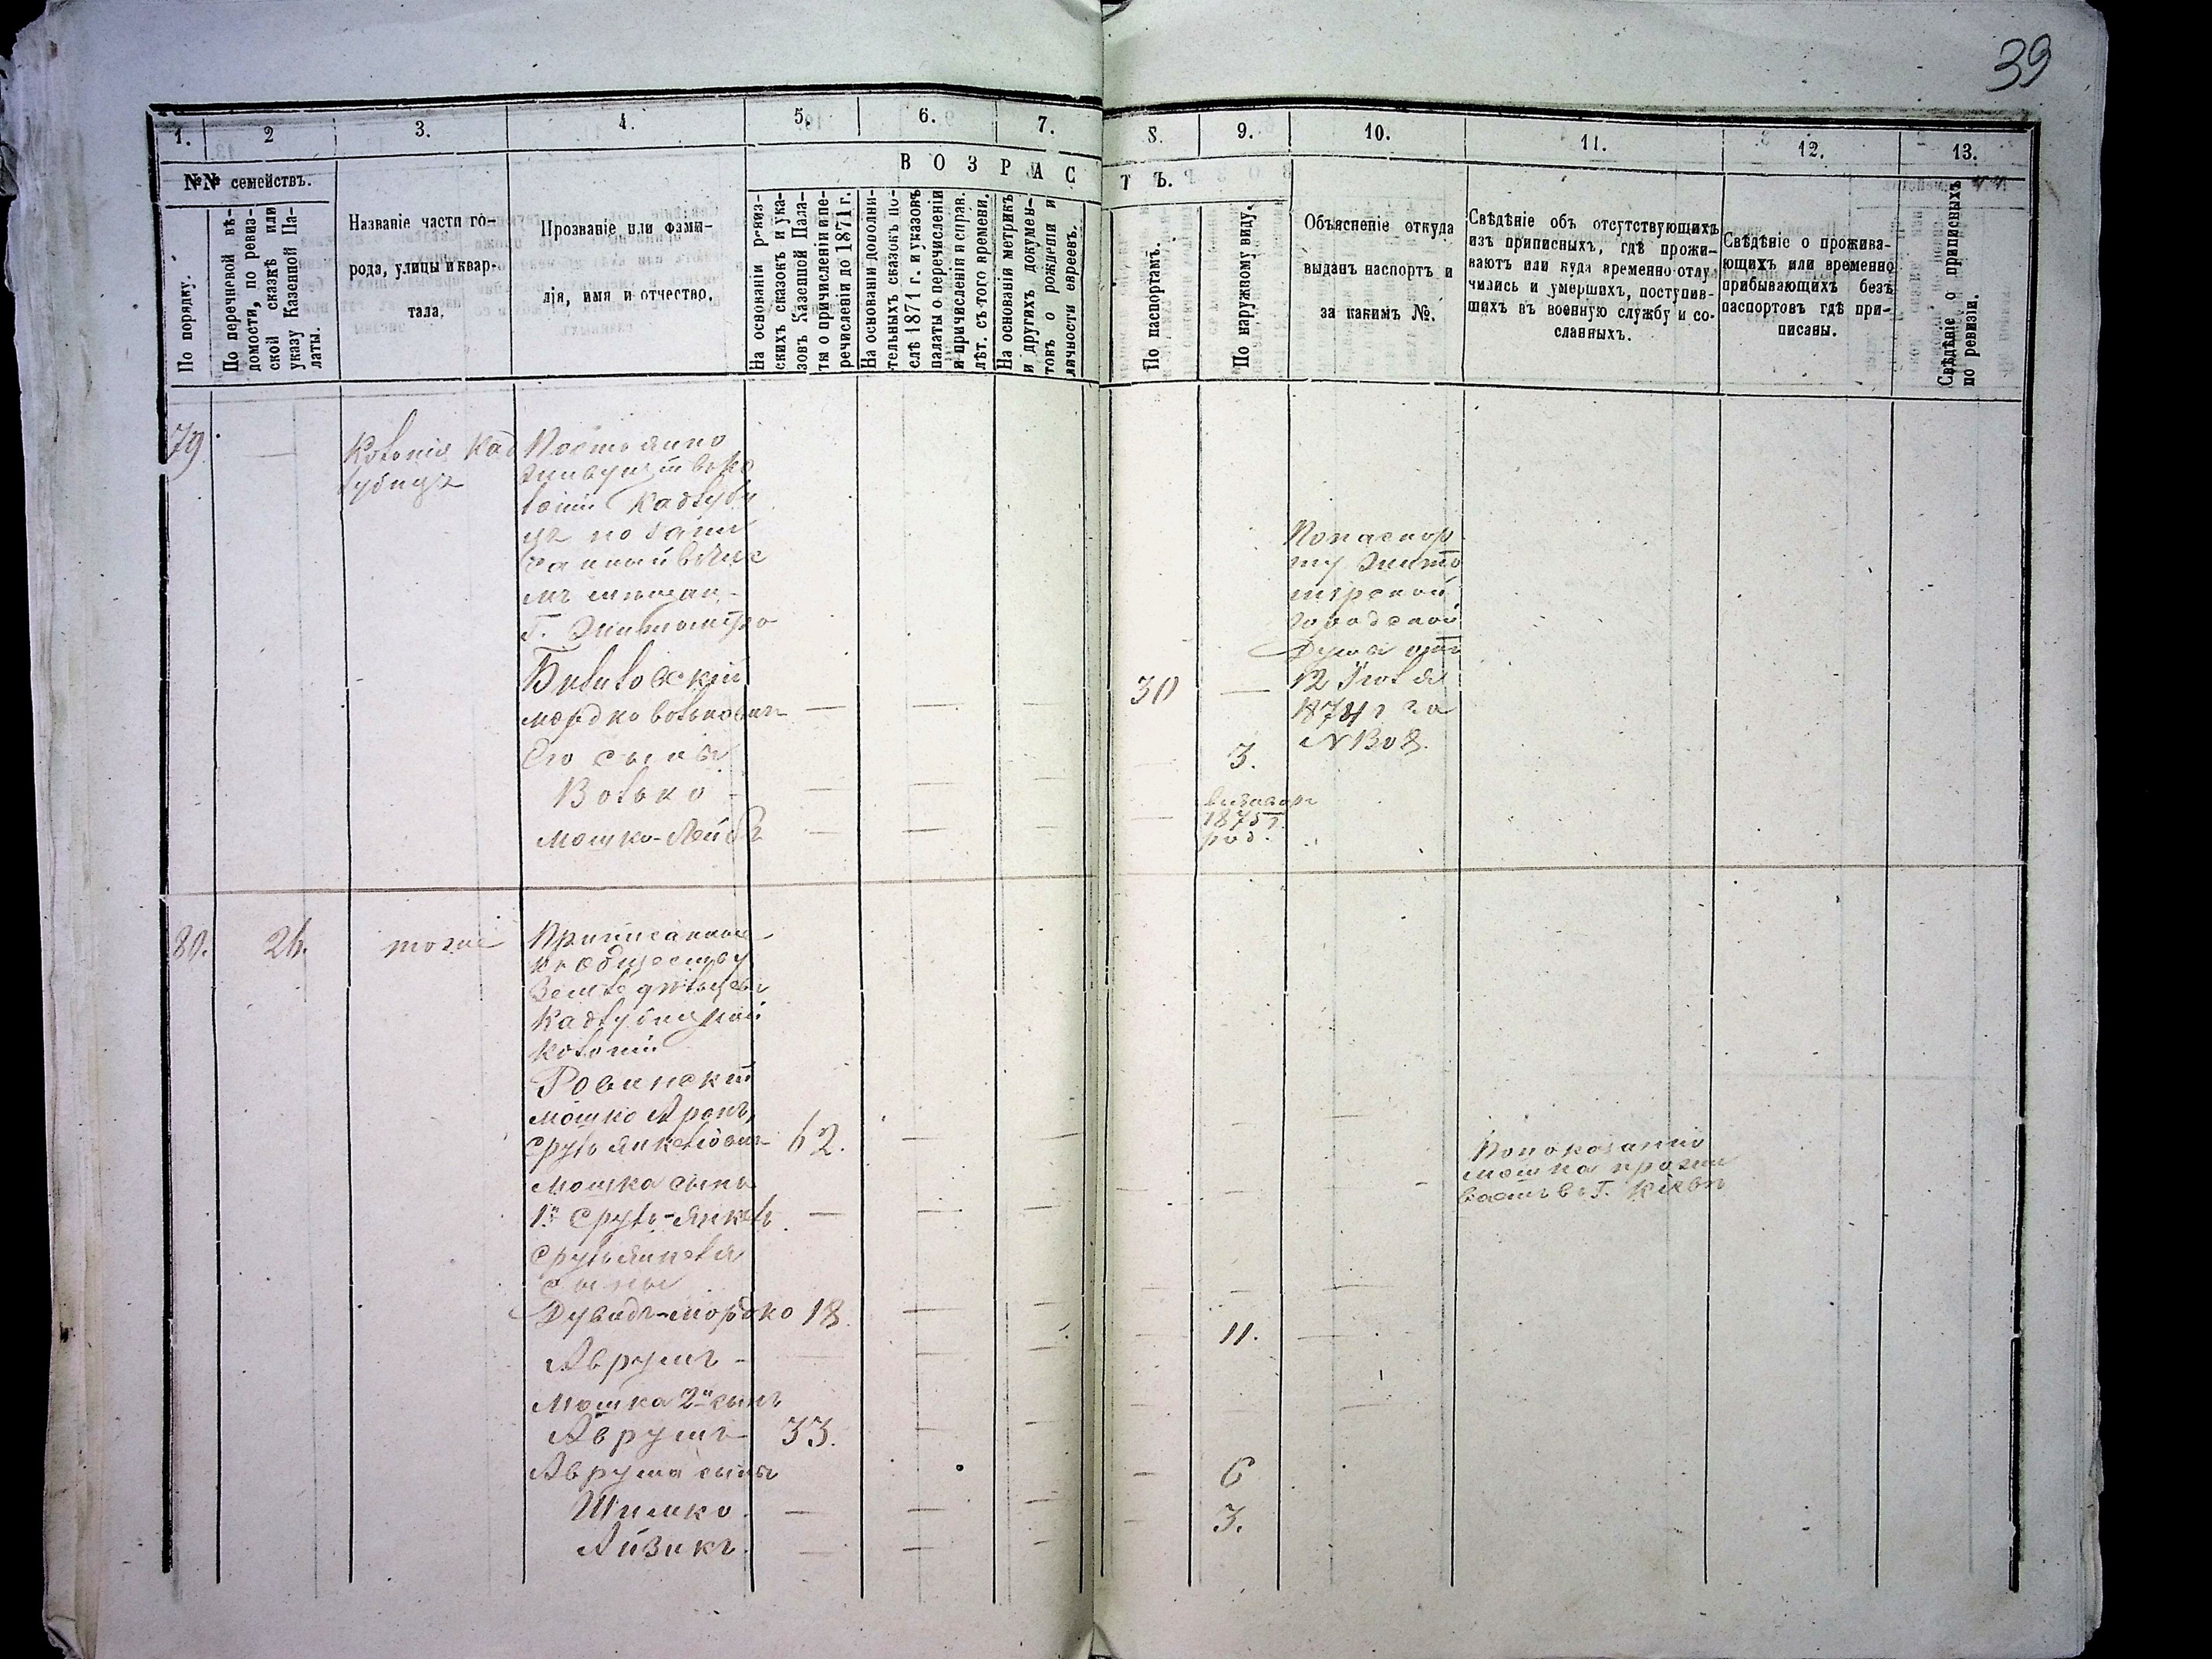 39
1. 2 3. 4. 5. 6. 7. 8. 9. 10. 11. 12. 13.
№№ семействъ.
По порядку.
По перечневой вѣ-
домости, по ревиз-
ской сказкѣ или
указу Казенной Па-
латы.
Названіе части го-
рода, улицы и квар-
тала.
Прозваніе или фами-
лія, имя и отчество.
ВОЗРАСТЪ.
На основаніи ревиз-
скихъ сказокъ и ука-
зовъ Казенной Пала-
ты о причисленіи и пе-
речисленіи до 1871 г.
На основаніи дополни-
тельныхъ сказокъ по-
слѣ 1871 г. и указовъ
палаты о перечисленіи
и причисленіи и справ.
лѣт. съ того времени.
На основаніи метрикъ
и другихъ докумен-
товъ о рожденіи и
личности евреевъ.
По паспортамъ.
По наружному виду.
Объясненіе откуда
выданъ паспортъ и
за какимъ №.
Свѣдѣніе объ отсутствующихъ
изъ приписныхъ, гдѣ прожи-
ваютъ или куда временно отлу
чились и умершихъ, поступив-
шихъ въ военную службу и со-
сланныхъ.
Свѣдѣніе о прожива-
ющихъ или временно
прибывающихъ безъ
паспортовъ гдѣ при-
писаны.
Свѣдѣніе о приписныхъ
по ревизіи.
79. — Колонія Кад
лубица
Постоянно
живущій въ ко
лоніи Кадлуби
цѣ
мѣщан.
Г. Житомира
Бялиловскій
Мордко Волькович —
Его сынъ
Волько — — — —
Мошко-Лейбъ — — — —
30 — 3.
1875 г.
род.
По паспор
ту Жито
мірской
городской
Думы отъ
12 Іюля
1874 г за
N 1308.
80. 26. тоже
Приписанные
къ обществу
Земледѣльцевъ
Кадлубицкой
Колоніи
Ровинскій
Мошко Аронъ
Сруль Янкелевич 62. — —
Мошка сынъ
1й Сруль-Янкель — — —
Сруль Янкеля
сыны
Дувидъ-Мордко 18. — —
Аврумъ — — — — — 11. —
Мошка 2й сынъ
Аврумъ 33. —
Аврума сыны
Шимко. — — — — 6
Айзикъ. — — — — 3.
По показанію
мошка прожи
ваетъ въ Г. Кіевѣ